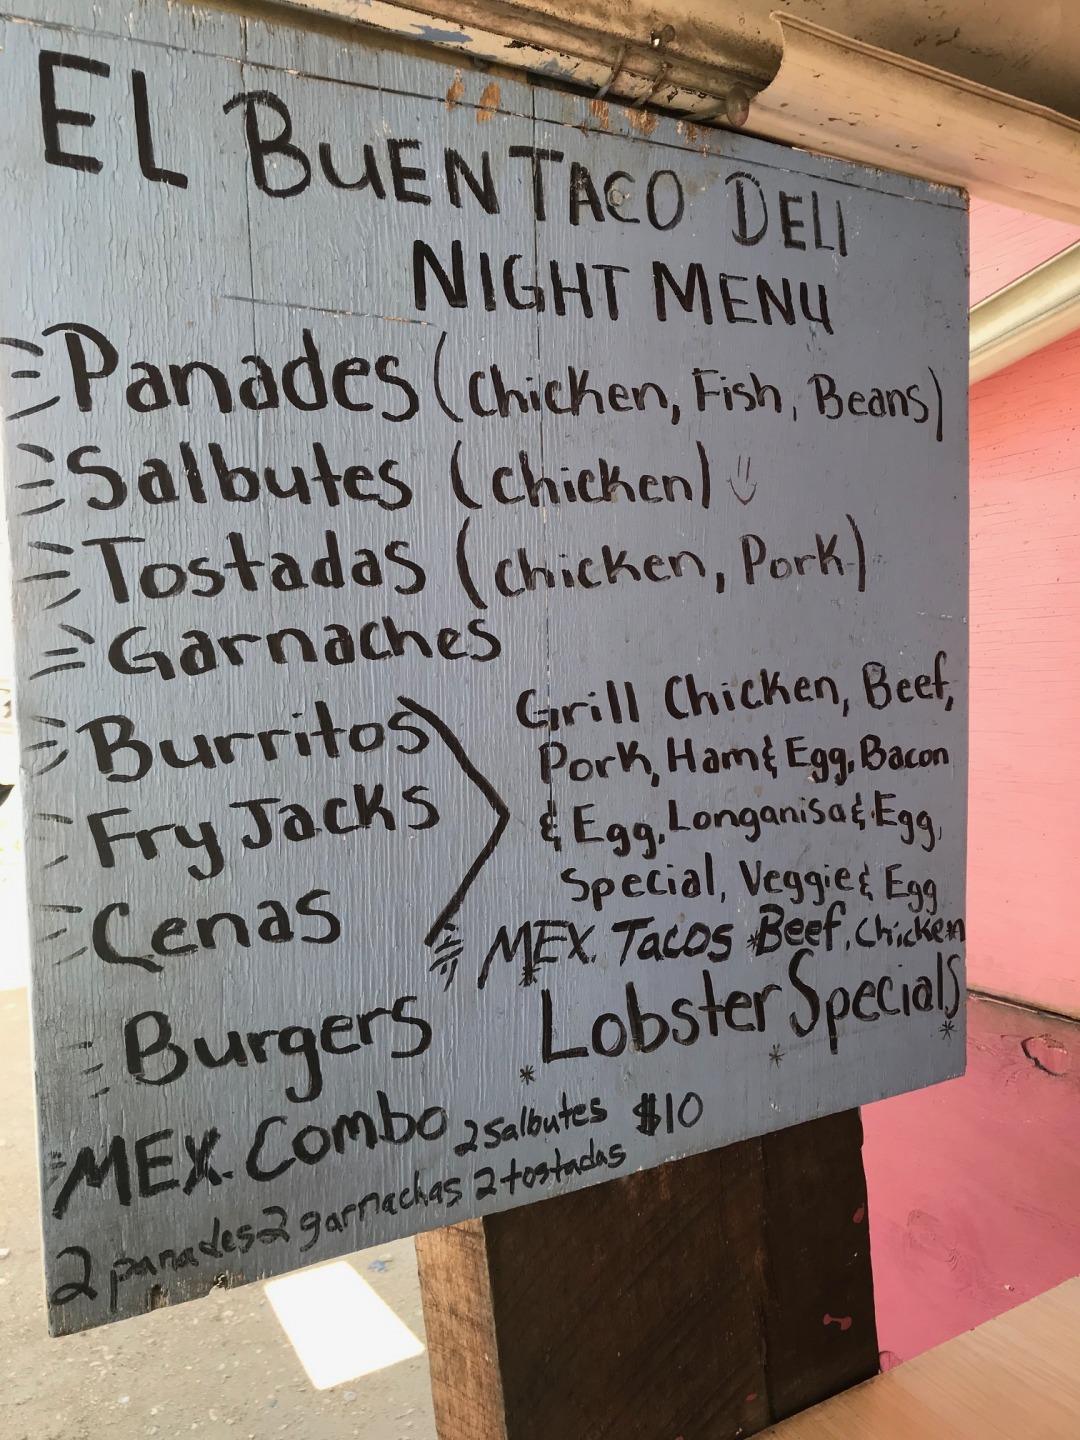 EL BUEN TACO DELI
NIGHT MENU
Panades (Chicken, Fish, Beans)
Salbutes (chicken)
Tostadas (chicken, Pork)
Garnaches
Burritos
Fry Jacks
Cenas
Grill Chicken, Beef,
Pork, Ham & Egg, Bacon
& Egg, Longanisa & Egg,
Special, Veggie & Egg
MEX. Tacos *Beef, Chicken
Burgers
Lobster Specials
MEX. Combo 2 salbutes $10
2 panades 2 garnachas 2 tostadas